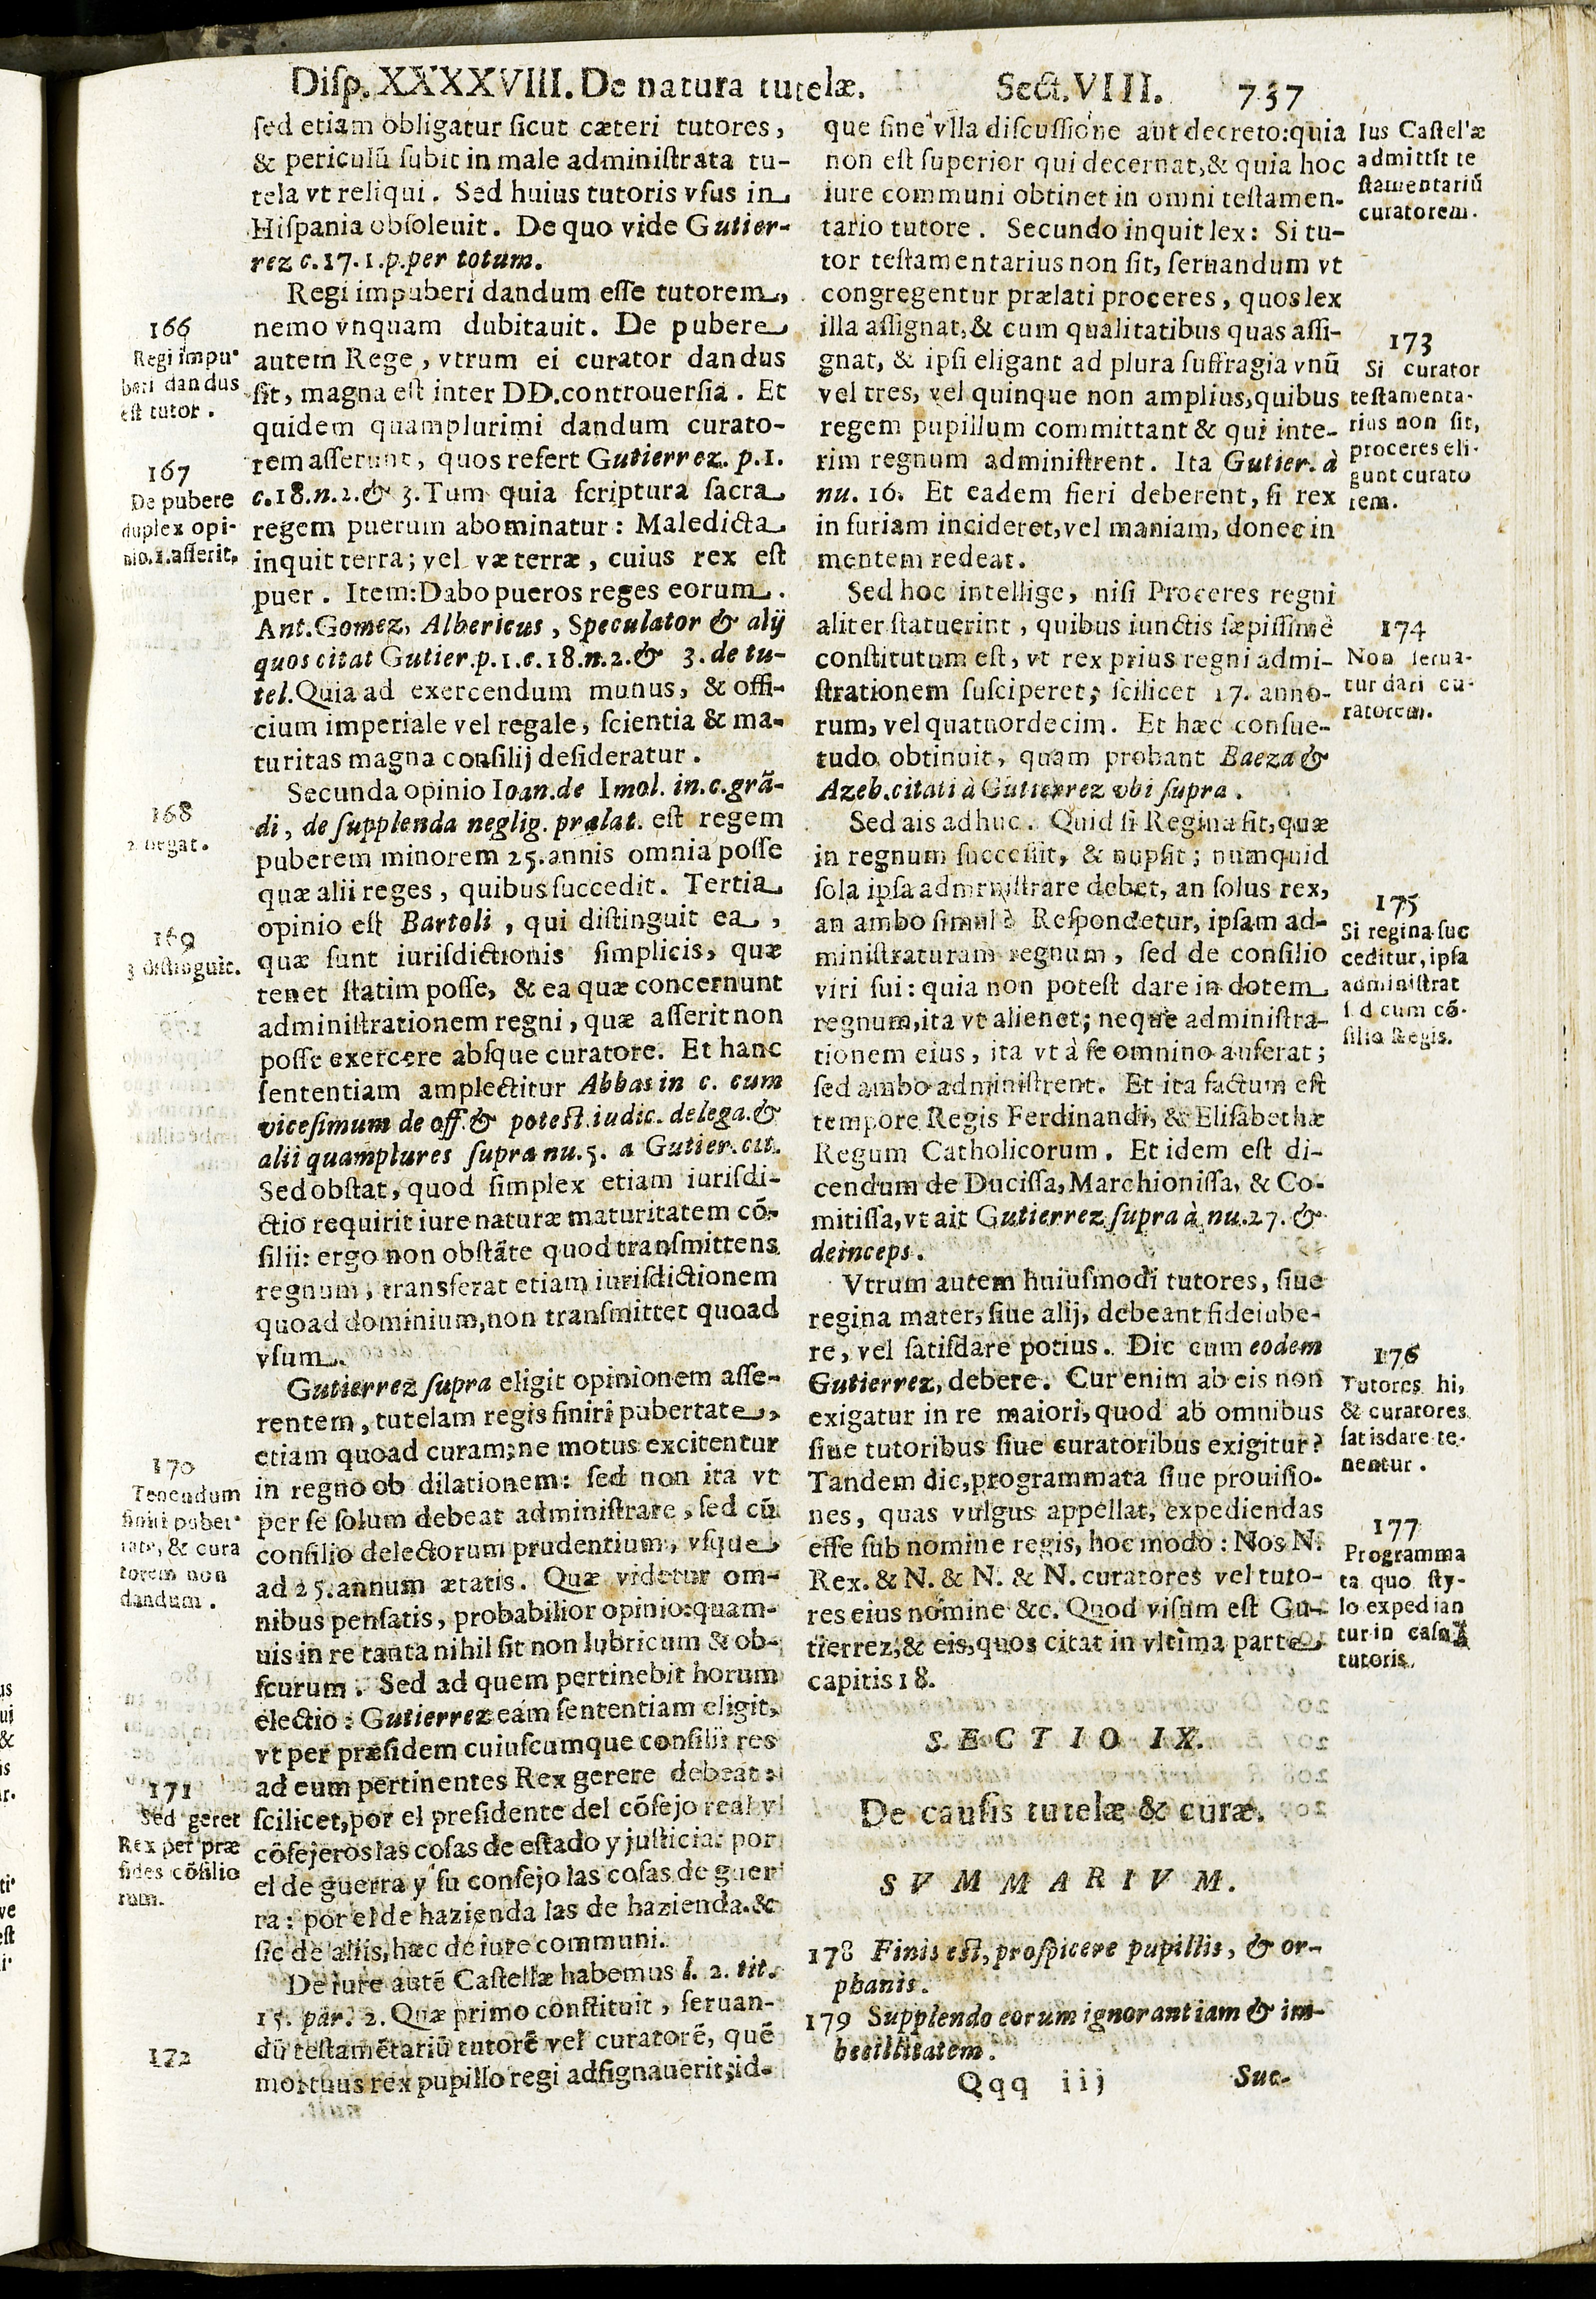 Diſp. XXXXVIII. De natura tutelæ. Sect. VIII. 737
ſed etiam obligatur ſicut cæteri tutores,
& periculũ ſubit in male adminiſtrata tu-
tela vt reliqui. Sed huius tutoris vſus in
Hiſpania obſoleuit. De quo vide Gutier-
rez c. 17. 1. p. per totum.
Regi impuberi dandum eſſe tutorem,
nemo vnquam dubitauit. De pubere
autem Rege, vtrum ei curator dandus
ſit, magna eſt inter DD. controuerſia. Et
quidem quamplurimi dandum curato-
rem aſſerunt, quos refert Gutierrez. p. 1.
c. 18. n. 2. & 3. Tum quia ſcriptura ſacra
regem puerum abominatur: Maledicta
inquit terra; vel væ terræ, cuius rex eſt
puer. Item: Dabo pueros reges eorum.
Ant. Gomez, Albericus, Speculator & alij
quos citat Gutier. p. 1. c. 18. n. 2. & 3. de tu-
tel. Quia ad exercendum munus, & offi-
cium imperiale vel regale, ſcientia & ma-
turitas magna conſilij deſideratur.
Secunda opinio Ioan. de Imol. in. c. grã-
di, de ſupplenda neglig. prælat. est regem
puberem minorem 25. annis omnia poſſe
quæ alii reges, quibus ſuccedit. Tertia
opinio eſt Bartoli, qui diſtinguit ea,
quæ ſunt iuriſdictionis ſimplicis, quæ
tenet ſtatim poſſe, & ea quæ concernunt
adminiſtrationem regni, quæ aſſerit non
poſſe exercere abſque curatore. Et hanc
ſententiam amplectitur Abbas in c. cum
viceſimum de off. & potest. iudic. delega. &
alii quamplures ſupra nu. 5. a Gutier. cit.
Sed obſtat, quod ſimplex etiam iuriſdi-
ctio requirit iure naturæ maturitatem cõ-
ſilii: ergo non obſtãte quod tranſmittens
regnum, transferat etiam iuriſdictionem
quoad dominium, non tranſmittet quoad
vſum.
Gutierrez ſupra eligit opinionem aſſe-
rentem, tutelam regis finiri pubertate,
etiam quoad curam; ne motus excitentur
in regno ob dilationem: ſed non ita vt
per ſe ſolum debeat adminiſtrare, ſed cũ
conſilio delectorum prudentium, vſque
ad 25. annum ætatis. Quæ videtur om-
nibus penſatis, probabilior opinio: quam-
uis in re tanta nihil ſit non lubricum & ob-
ſcurum. Sed ad quem pertinebit horum
electio: Gutierrez eam ſententiam eligit,
vt per præſidem cuiuſcumque conſilii res
ad eum pertinentes Rex gerere debeat:
ſcilicet, por el preſidente del cõſejo real y
cõſejeros las coſas de eſtado y juſticia: por
el de guerra y ſu conſejo las coſas de guer
ra: por el de hazienda las de hazienda. &
ſic de aliis, hæc de iure communi.
De iure autẽ Caſtellæ habemus l. 2. tit.
15. par. 2. Quæ primo conſtituit, ſeruan-
dũ teſtamẽtariũ tutorẽ vel curatorẽ, quẽ
mortuus rex pupillo regi adſignauerit; id-
166
Regi impu-
beri dandus
eſt tutor.
167
De pubere
duplex opi-
nio. 1. aſſerit.
168
2 negat.
169
3 diſtinguit.
170
Tenendum
finiri puber-
tate, & cura
torem non
dandum.
171
Sed geret
Rex per præ
ſides cõſilio
rum.
172
que ſine vlla diſcuſſione aut decreto: quia
non eſt ſuperior qui decernat, & quia hoc
iure communi obtinet in omni teſtamen-
tario tutore. Secundo inquit lex: Si tu-
tor teſtamentarius non ſit, ſeruandum vt
congregentur prælati proceres, quos lex
illa aſſignat, & cum qualitatibus quas aſſi-
gnat, & ipſi eligant ad plura ſuffragia vnũ
vel tres, vel quinque non amplius, quibus
regem pupillum committant & qui inte-
rim regnum adminiſtrent. Ita Gutier. à
nu. 16. Et eadem fieri deberent, ſi rex
in furiam incideret, vel maniam, donec in
mentem redeat.
Sed hoc intellige, niſi Proceres regni
aliter ſtatuerint, quibus iunctis ſæpiſſimè
conſtitutum eſt, vt rex prius regni admi-
ſtrationem ſuſciperet; ſcilicet 17. anno-
rum, vel quatuordecim. Et hæc conſue-
tudo obtinuit, quam probant Baeza &
Azeb. citati à Gutierrez vbi ſupra.
Sed ais adhuc. Quid ſi Regina ſit, quæ
in regnum ſucceſſit, & nupſit; numquid
ſola ipſa adminiſtrare debet, an ſolus rex,
an ambo ſimul? Reſpondetur, ipſam ad-
miniſtraturam regnum, ſed de conſilio
viri ſui: quia non poteſt dare in dotem
regnum, ita vt alienet; neque adminiſtra-
tionem eius, ita vt à ſe omnino auferat;
ſed ambo adminiſtrent. Et ita factum eſt
tempore Regis Ferdinandi, & Eliſabethæ
Regum Catholicorum. Et idem eſt di-
cendum de Duciſſa, Marchioniſſa, & Co-
mitiſſa, vt ait Gutierrez ſupra à nu. 27. &
deinceps.
Vtrum autem huiuſmodi tutores, ſiue
regina mater, ſiue alij, debeant fideiube-
re, vel ſatiſdare potius. Dic cum eodem
Gutierrez, debere. Cur enim ab eis non
exigatur in re maiori, quod ab omnibus
ſiue tutoribus ſiue curatoribus exigitur?
Tandem dic, programmata ſiue prouiſio-
nes, quas vulgus appellat, expediendas
eſſe ſub nomine regis, hoc modo: Nos N.
Rex. & N. & N. & N. curatores vel tuto-
res eius nomine &c. Quod viſum eſt Gu-
tierrez, & eis, quos citat in vltima parte
capitis 18.
SECTIO IX.
De cauſis tutelæ & curæ.
SVMMARIVM.
178 Finis est, proſpicere pupillis, & or-
phanis.
179 Supplendo eorum ignorantiam & im-
becillitatem.
Qqq iij Suc-
Ius Caſtellæ
admittit te
ſtamentariũ
curatorem.
173
Si curator
teſtamenta-
rius non ſit,
proceres eli-
gunt curato
rem.
174
Non ſerua-
tur dari cu-
ratorem.
175
Si regina ſuc
ceditur, ipſa
adminiſtrat
ſed cum cõ-
ſilio Regis.
176
Tutores hi,
& curatores
ſatisdare te-
nentur.
177
Programma
ta quo ſty-
lo expedian
tur in caſu
tutoris.